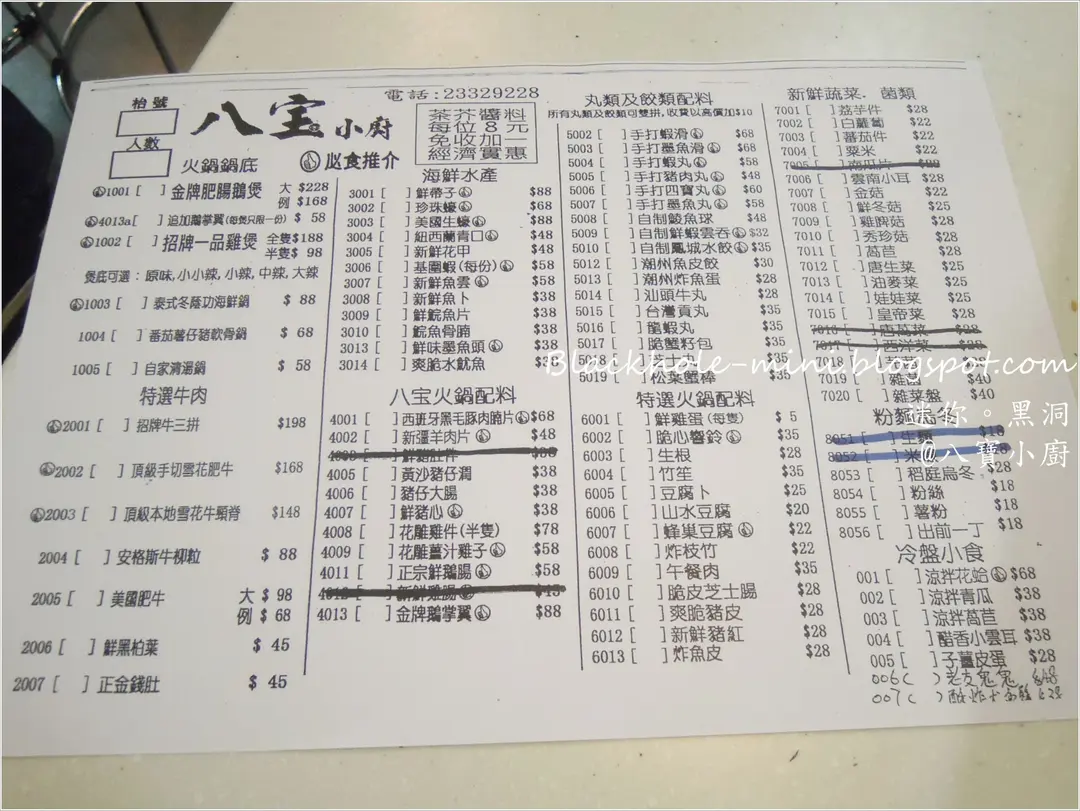 枱號
人數
八宝小廚
電話:23329228
茶芥醬料
每位8元
免收加一
經濟實惠
必食推介
火鍋鍋底
1001 [ ] 金牌肥腸鵝煲 大 $228
例 $168
4013a[ ] 追加鵝掌翼(每隻只限一份) $ 58
1002 [ ] 招牌一品雞煲 全隻$188
半隻$ 98
煲底可選：原味,小小辣,小辣,中辣,大辣
1003 [ ] 泰式冬蔭功海鮮鍋 $ 88
1004 [ ] 番茄薯仔豬軟骨鍋 $ 68
1005 [ ] 自家清湯鍋 $ 58
特選牛肉
2001 [ ] 招牌牛三拼 $198
2002 [ ] 頂級手切雪花肥牛 $168
2003 [ ] 頂級本地雪花牛頸脊 $148
2004 [ ] 安格斯牛柳粒 $ 88
2005 [ ] 美國肥牛 大 $ 98
例 $ 68
2006 [ ] 鮮黑柏葉 $ 45
2007 [ ] 正金錢肚 $ 45
海鮮水產
3001 [ ] 鮮帶子 $88
3002 [ ] 珍珠蠔 $68
3003 [ ] 美國生蠔 $88
3004 [ ] 紐西蘭青口 $48
3005 [ ] 新鮮花甲 $48
3006 [ ] 基圍蝦(每份) $58
3007 [ ] 新鮮魚雲 $58
3008 [ ] 新鮮魚卜 $38
3009 [ ] 鮮鯇魚片 $38
3010 [ ] 鯇魚骨腩 $38
3013 [ ] 鮮味墨魚頭 $38
3014 [ ] 爽脆水魷魚
八宝火鍋配料
4001 [ ] 西班牙黑毛豚肉脆片 $68
4002 [ ] 新疆羊肉片 $48
鮮豬肚件
4005 [ ] 黃沙豬仔潤 $38
4006 [ ] 豬仔大腸 $38
4007 [ ] 鮮豬心 $38
4008 [ ] 花雕雞件(半隻) $78
4009 [ ] 花雕薑汁雞子 $58
4011 [ ] 正宗鮮鵝腸 $58
4012 [ ] 新鮮雞腸 $45
4013 [ ] 金牌鵝掌翼 $88
丸類及餃類配料
所有丸類及餃類可雙拼,收費以高價加$10
5002 [ ] 手打蝦滑 $68
5003 [ ] 手打墨魚滑 $68
5004 [ ] 手打蝦丸 $58
5005 [ ] 手打豬肉丸 $48
5006 [ ] 手打四寶丸 $60
5007 [ ] 手打墨魚丸 $58
5008 [ ] 自制鯪魚球 $48
5009 [ ] 自制鮮蝦雲吞 $32
5010 [ ] 自制鳳城水餃 $35
5012 [ ] 潮州魚皮餃 $30
5013 [ ] 潮州炸魚蛋 $28
5014 [ ] 汕頭牛丸 $28
5015 [ ] 台灣貢丸 $35
5016 [ ] 龍蝦丸 $35
5017 [ ] 脆蟹籽包 $35
芝士丸
5019 [ ] 松葉蟹棒 $35
特選火鍋配料
6001 [ ] 鮮雞蛋(每隻) $ 5
6002 [ ] 脆心響鈴 $35
6003 [ ] 生根 $28
6004 [ ] 竹笙 $35
6005 [ ] 豆腐卜 $25
6006 [ ] 山水豆腐 $20
6007 [ ] 蜂巢豆腐 $22
6008 [ ] 炸枝竹 $22
6009 [ ] 午餐肉 $35
6010 [ ] 脆皮芝士腸 $28
6011 [ ] 爽脆豬皮 $28
6012 [ ] 新鮮豬紅 $28
6013 [ ] 炸魚皮 $28
新鮮蔬菜．菌類
7001 [ ] 荔芋件 $28
7002 [ ] 白蘿蔔 $22
7003 [ ] 蕃茄件 $22
7004 [ ] 粟米 $22
7005 [ ]
7006 [ ] 雲南小耳 $28
7007 [ ] 金菇 $22
7008 [ ] 鮮冬菇 $28
7009 [ ] 雞脾菇 $28
7010 [ ] 秀珍菇 $28
7011 [ ] 萵苣 $28
7012 [ ] 唐生菜 $25
7013 [ ] 油麥菜 $25
7014 [ ] 娃娃菜 $25
7015 [ ] 皇帝菜 $28
7016 [ ] 唐萵菜 $28
7017 [ ] 西洋菜 $28
7018 [ ]
7019 [ ] 雜菌 $40
7020 [ ] 雜菜盤 $40
粉麵
8051 [ ] 生麵 $18
8052 [ ] 米
8053 [ ] 稻庭烏冬
8054 [ ] 粉絲 $18
8055 [ ] 薯粉 $18
8056 [ ] 出前一丁 $18
冷盤小食
001 [ ] 涼拌花蛤 $68
002 [ ] 涼拌青瓜 $38
003 [ ] 涼拌萵苣 $38
004 [ ] 醋香小雲耳 $38
005 [ ] 子薑皮蛋 $28
006( )
007( )
Blackhole-mini.blogspot.com
迷你。黑洞
@八寶小廚